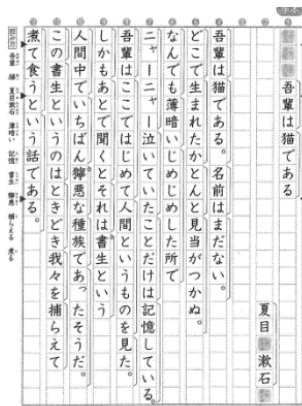 吾輩は猫である
夏目漱石
吾輩は猫である。名前はまだない。
どこで生まれたかとんと見当がつかぬ。
なんでも薄暗いじめじめした所で
ニャーニャー泣いていたことだけは記憶している。
吾輩はここではじめて人間というものを見た。
しかもあとで聞くとそれは書生という
人間中でいちばん獰悪な種族であったそうだ。
この書生というのはときどき我々を捕らえて
煮て食うという話である。
吾輩 猫 夏目漱石 薄暗い 記憶 書生 獰悪 捕らえる 煮る